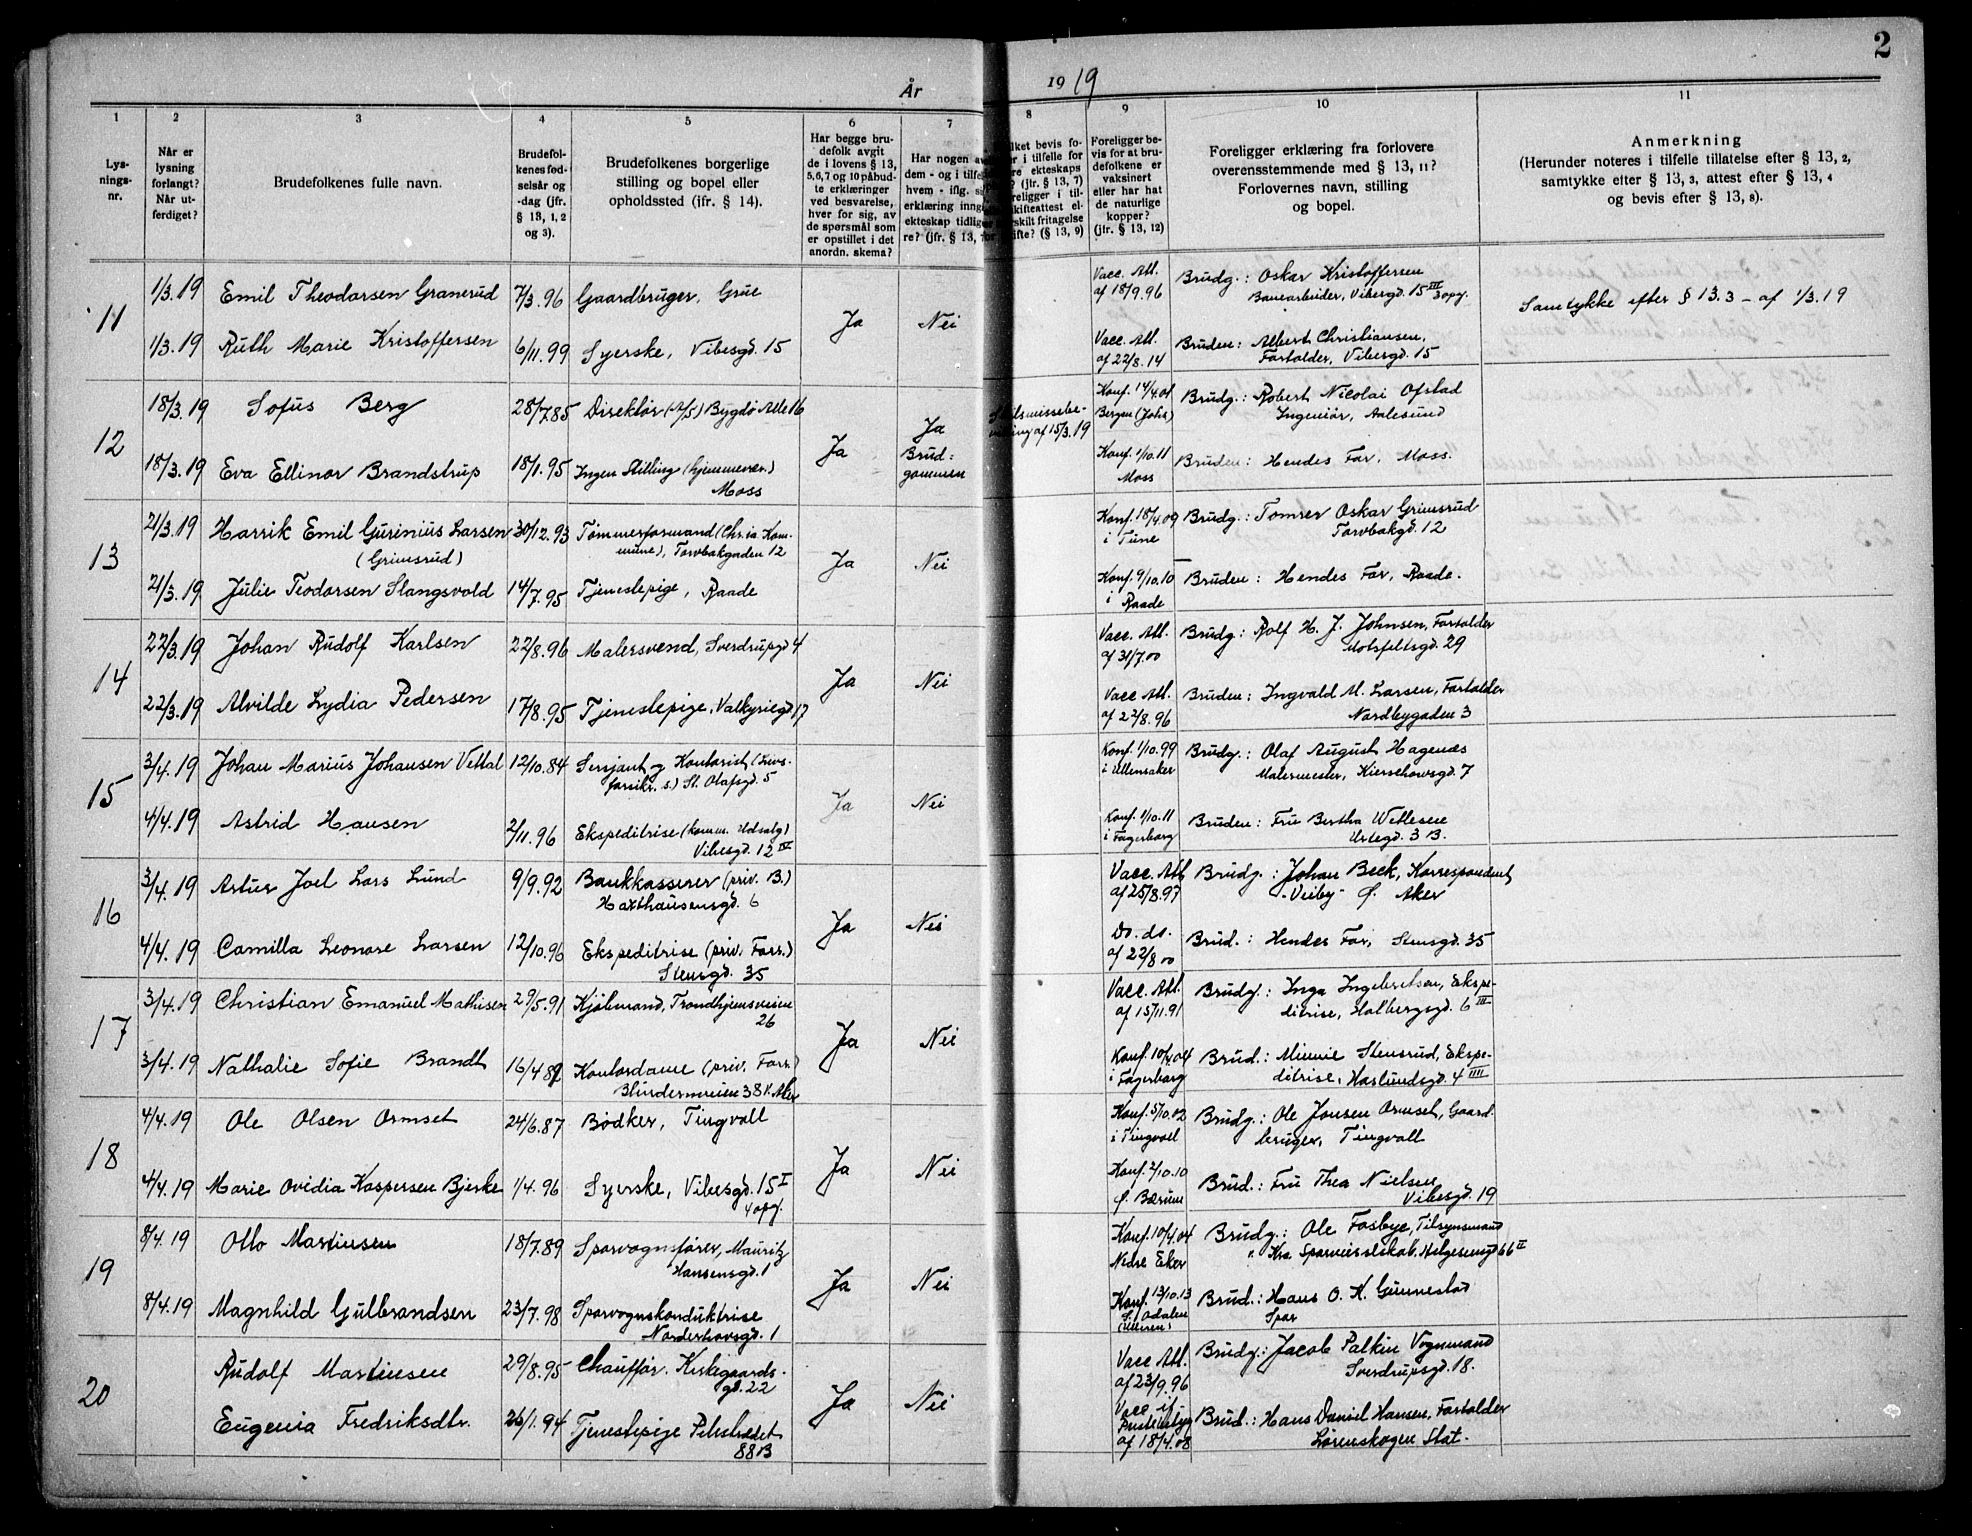 2
År 1919
1
2
3
4
5
6
7
8
9
10
11
Lys-
nings-
nr.
Når er
lysning
forlangt?
Når ut-
ferdiget?
Brudefolkenes fulle navn.
Brudefol-
kenes fød-
selsår og
-dag (jfr.
§ 13, 1, 2
og 3).
Brudefolkenes borgerlige
stilling og bopel eller
opholdssted (jfr. § 14).
Har begge bru-
defolk avgit
de i lovens § 13,
5,6,7 og 10 påbud-
te erklæringer
ved besvarelse,
hver for sig, av
de spørsmål som
er opstillet i det
anordn. skema?
Har nogen av
dem - og i tilfel
hvem - iflg. si
erklæring inng
ekteskap tidlige
re? (jfr. § 13,
ket bevis fo-
r i tilfelle for
re ekteskaps
? (jfr. § 13, 7)
religger i til-
kifteattest el-
rskilt fritagelse
ifte? (§ 13, 9)
Foreligger be-
vis for at bru-
defolkene er
vaksinert
eller har hat
de naturlige
kopper?
(jfr. § 13, 12)
Foreligger erklæring fra forlovere
overensstemmende med § 13, 11?
Forlovernes navn, stilling
og bopel.
Anmerkning
(Herunder noteres i tilfelle tillatelse efter § 13, 2,
samtykke efter § 13, 3, attest efter § 13, 4
og bevis efter § 13, 8).
11
1/3.19 Emil Theodorsen Granerud 7/3.96 Gaardbruger, Grue
Ja Nei
Vacc. Att.
af 18/9.96
Brudg.: Oskar Kristoffersen
Banearbeider, Vibesgd. 15 III 3 opg.
Samtykke efter § 13.3 – af 1/3.19
1/3.19 Ruth Marie Kristoffersen 6/11.99 Syerske, Vibesgd. 15
Vacc. Att.
af 22/8.14
Bruden: Albert Christiansen,
Fortolder, Vibesgd. 15
12
18/3.19 Sofus Berg 28/7.85 Direktør (A/S) Bygdø Alle 16
Ja
Ja
Brud-
gommen
af 15/3.19
Konf. 14/4.01
Bergen (Johs)
Brudg.: Robert Nicolai Ofstad
Ingeniør, Aalesund
18/3.19 Eva Ellinor Brandstrup 18/1.95 Ingen Stilling (hjemmevær.)
Moss
Konf. 1/10.11
Moss
Bruden: Hendes Far, Moss.
13
21/3.19 Harrik Emil Gurinius Larsen 30/12.93 Tømmerformand (Chr.ia Kom-
(Grimsrud)
mune), Torvbakgaden 12
Ja Nei
Konf. 18/4.09
i Tune
Brudg.: Tømrer Oskar Grimsrud
Torvbakgd. 12
21/3.19 Julie Teodorsen Slangsvold 14/7.95 Tjenestepige, Raade
Konf. 9/10.10
i Raade
Bruden: Hendes Far, Raade.
14
22/3.19 Johan Rudolf Karlsen 22/8.96 Malersvend, Sverdrupgd 4
Ja Nei
Vacc. Att.
af 31/7.00
Brudg.: Rolf H. J. Johnsen, Fortolder
Motzfeltsgd. 29
22/3.19 Alvilde Lydia Pedersen 17/8.95 Tjenestepige, Valkyriegd. 17
Vacc. Att.
af 22/8.96
Bruden: Ingvald M. Larsen, Fortolder
Nordbygaden 3
15
3/4.19 Johan Marius Johansen Vettal 12/10.84 Sersjant og Kontorist (Livs-
forsikr. s.) St. Olafsgd. 5
Ja Nei
Konf. 1/10.99
i Ullensaker
Brudg.: Olaf August Hagenæs
Malermester, Kierschowsgd. 7
4/4.19 Astrid Hansen 2/11.96 Ekspeditrise (komm. Udsalg)
Vibesgd. 12 IV
Konf. 1/10.11
i Fagerborg
Bruden: Fru Bertha Wetlesen
Urtegd. 3 B.
16
3/4.19 Artur Joel Lars Lund 9/9.92 Bankkasserer (priv. B.)
Haxthausensgd. 6
Ja Nei
Vacc. Att
af 25/8.97
Brudg.: Johan Beck, Korrespondent
Aker
4/4.19 Camilla Leonore Larsen 12/10.96 Ekspeditrise (priv. Forr.)
Stensgd. 35
Do. do.
af 22/8 00
Brud.: Hendes Far, Stensgd. 35
17
3/4.19 Christian Emanuel Mathisen 29/5.91 Kjøbmand, Trondhjemsveien
26
Ja Nei
Vacc. Att.
af 15/11.91
Brudg.: Inga Ingebretsen, Ekspe-
ditrise, Holbergsgd. 6 III
3/4.19 Nathalie Sofie Brandt 16/4 87 Kontordame (priv. Forr.)
Blindernveien 38 V. Aker
Konf. 10/4.04
i Fagerborg
Brud.: Minnie Stensrud, Ekspe-
ditrise, Haslundsgd. 4 IIII
18
4/4.19 Ole Olsen Ormset 24/6.87 Bødker, Tingvoll
Ja Nei
Konf. 5/10.02
i Tingvoll
Brudg.: Ole Jonsen Ormset, Gaard-
bruger, Tingvoll
4/4.19 Marie Ovidia Kaspersen Bjerke 1/4.96 Syerske, Vibesgd. 15 I
4 opg.
Konf. 2/10.10
Ø. Bærum
Brud.: Fru Thea Nielsen
Vibesgd. 19
19
8/4.19 Otto Martinsen 18/7.89 Sporvognsfører, Mauritz
Hansensgd. 1
Ja Nei
Konf. 10/4.04
Nedre Eker
Brudg.: Ole Fosbye, Tilsynsmand
v. Kra. Sporveisselskab, Helgesensgd 66 II
8/4.19 Magnhild Gulbrandsen 23/7.98 Sporvognskonduktrise
Norderhovsgd. 1
Konf. 13/10.13
S. Odalen
(Ulleren)
Brud.: Hans O. K. Gunnestad
Spor
20
Rudolf Martinsen 29/8.95 Chauffør. Kirkegaards-
gd. 22
Ja Nei
Vacc Att.
af 23/9.96
Brudg.: Jacob Palkin Vognmand
Sverdrupsgd. 18.
Eugenia Fredriksdtr. 26/1.94 Tjenestepige Pilestrædet
88B
Vacc if
af 18/4.08
Brud.: Hans Daniel Hansen, Fortolder
Lørenskogen Stat.